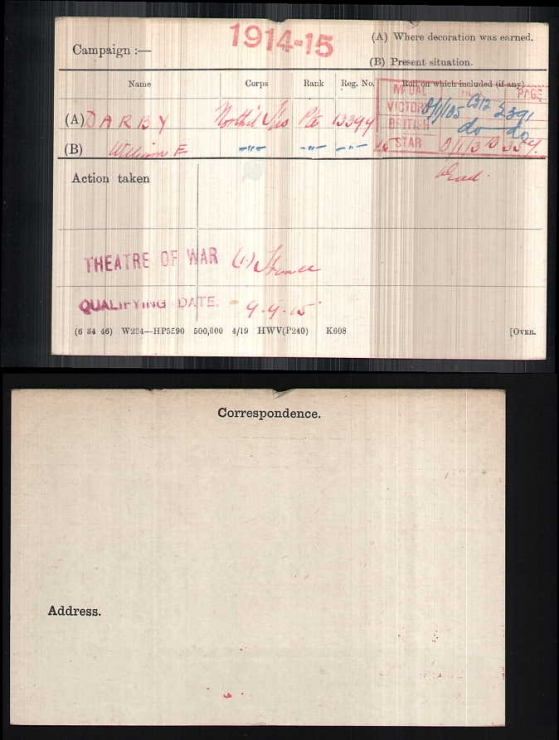 1914-15
Campaign :—
(A) Where decoration was earned.
(B) Present situation.
Name Corps Rank Reg. No. Roll on which included (if any)
MEDAL PAGE
(A) DARBY Pte 13394 VICTORY 0/1/105
(B) William E —"— —"— —"— BRITISH do do
STAR
Action taken Dead.
THEATRE OF WAR (1) France
QUALIFYING DATE. 9.9.15
(6 34 46) W234—HP5590 500,000 4/19 HWV(P240) K608 [OVER.
Correspondence.
Address.